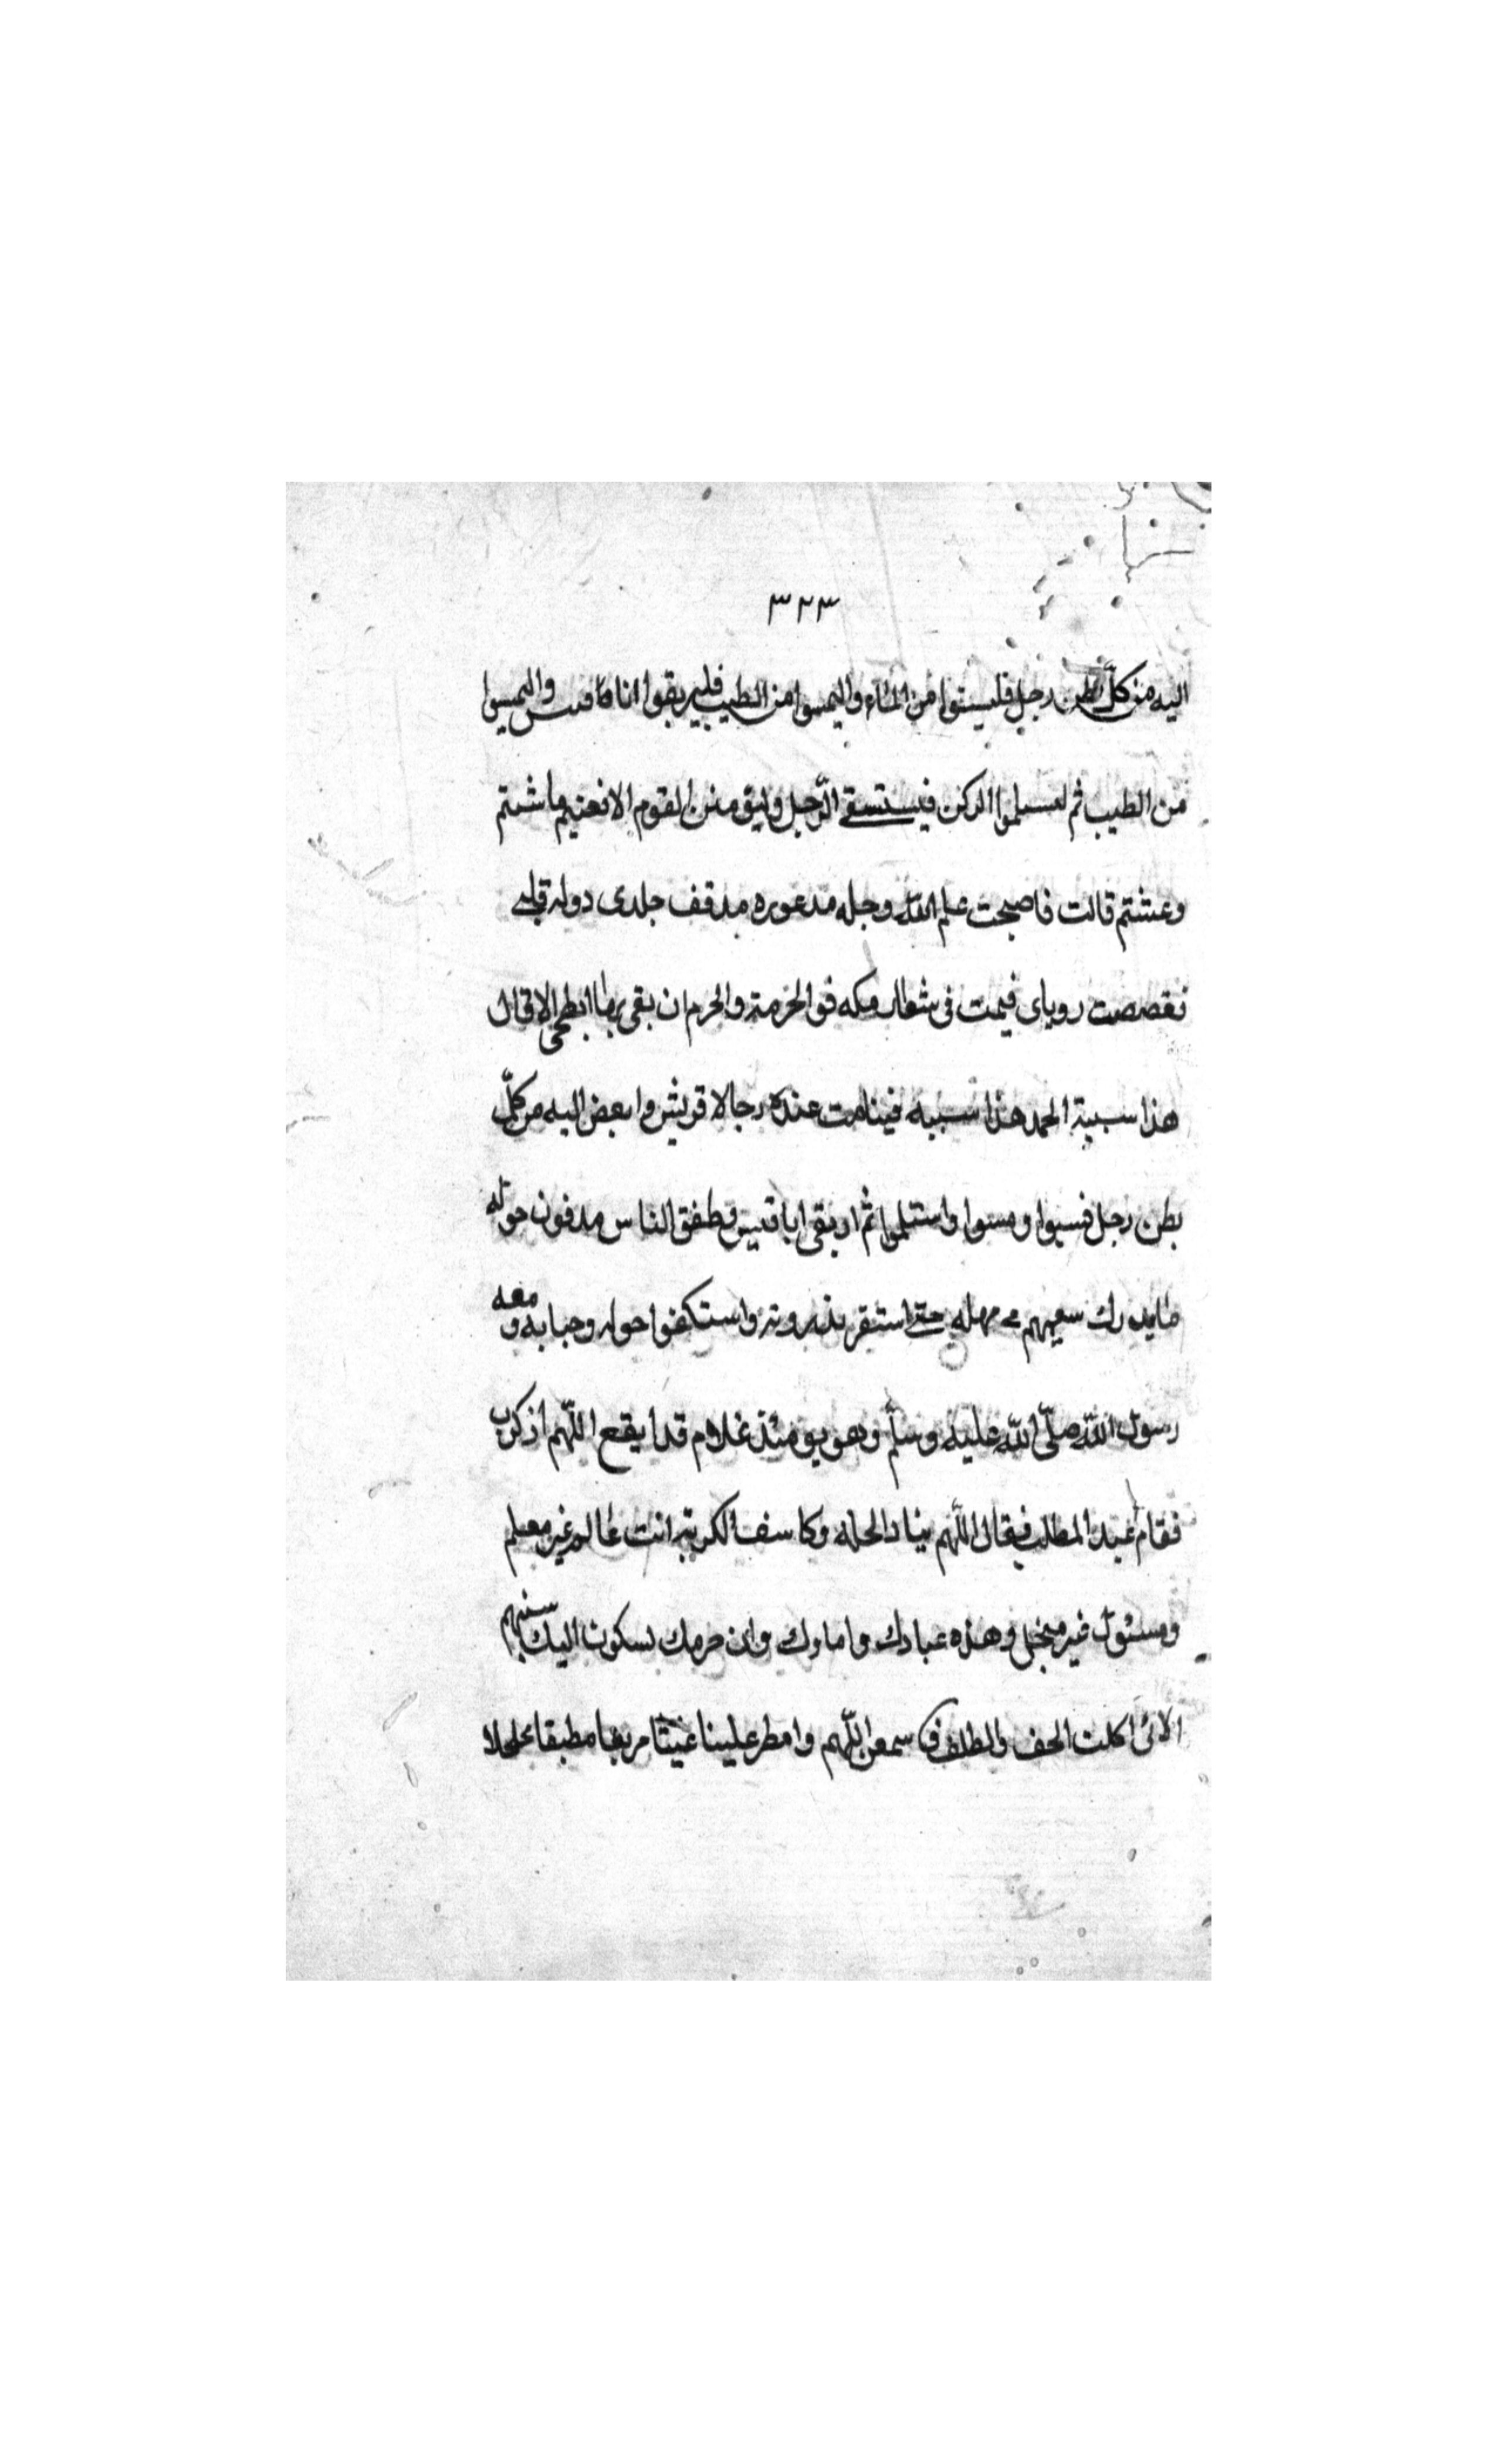 ٣٢٣
اليه من كلّ بطن رجل فليستوا من الماء واليمسوا من الطيب فليريقوا انا قافس واليمسوا
من الطيب ثم لسلموا الركن فيستسقى الرّجل وليؤمنن القوم الا فعثيم ما شيتم
وعشتم قالت فاصبحت علم الله وجله مدعوره مد قف جلدى دوله قلبى
فقصصت روياى فيمت فى شعاب مكه فو الحرمة والحرم ان بقى بها ابطحى الا قال
هذا سيبة الحمد هذا سيبه فينامت عنده رجالا قريش وا بعض اليه من كلّ
بطن رجل فسبوا ومسوا واستلموا ثم اريقى ابا قبيس وطفق الناس مدفون حوله
ما يدرك سعيهم مهله حتى استقر بذروته واستكفوا حوله وجبا به ومعه
رسول اللّه صلّى اللّه عليه وسلّم وهو يومئذ غلام قد ايقع اللّهم اذكرب
فقام عبد المطلب فقال اللّهم يناد الحله وكا سف الكربة انت عالم غير معلم
ومسئول غير مبخل وهذه عبادك واماوك وان حرمك يسكون اليك سنيهم
الائى اكلت الحف والظلف فى سمعن اللّهم وامطر علينا غيثا مريعا مطبقا مجلجلا